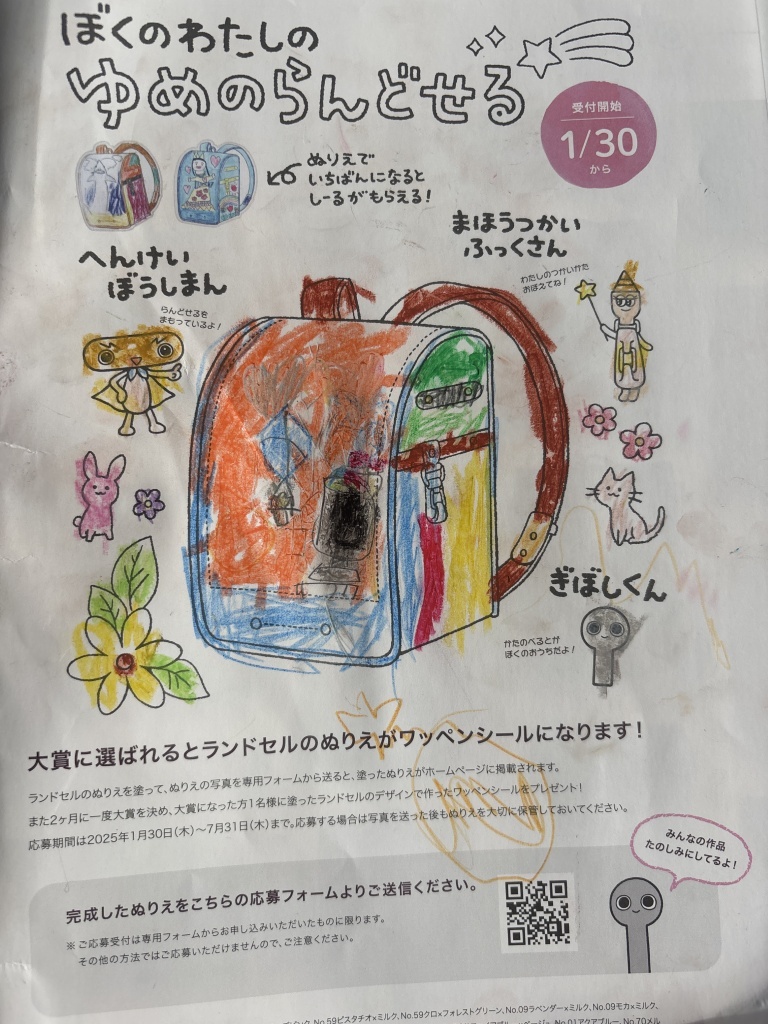 ぼくのわたしの
ゆめのらんどせる
受付開始
1/30
から
ぬりえで
いちばんになると
しーるがもらえる!
まほうつかい
ふっくさん
わたしのつかいかた
おぼえてね!
へんけい
ぼうしまん
らんどせるを
まもっているよ!
ぎぼしくん
かたのべるとが
ぼくのおうちだよ!
大賞に選ばれるとランドセルのぬりえがワッペンシールになります!
ランドセルのぬりえを塗って、ぬりえの写真を専用フォームから送ると、塗ったぬりえがホームページに掲載されます。
また2ヶ月に一度大賞を決め、大賞になった方1名様に塗ったランドセルのデザインで作ったワッペンシールをプレゼント!
応募期間は2025年1月30日(木)〜7月31日(木)まで。応募する場合は写真を送った後もぬりえを大切に保管しておいてください。
みんなの作品
たのしみにしてるよ!
完成したぬりえをこちらの応募フォームよりご送信ください。
※ご応募受付は専用フォームからお申し込みいただいたものに限ります。
その他の方法ではご応募いただけませんので、ご注意ください。
No.59ピスタチオ×ミルク、No.59クロ×フォレストグリーン、No.09ラベンダー×ミルク、No.09モカ×ミルク、